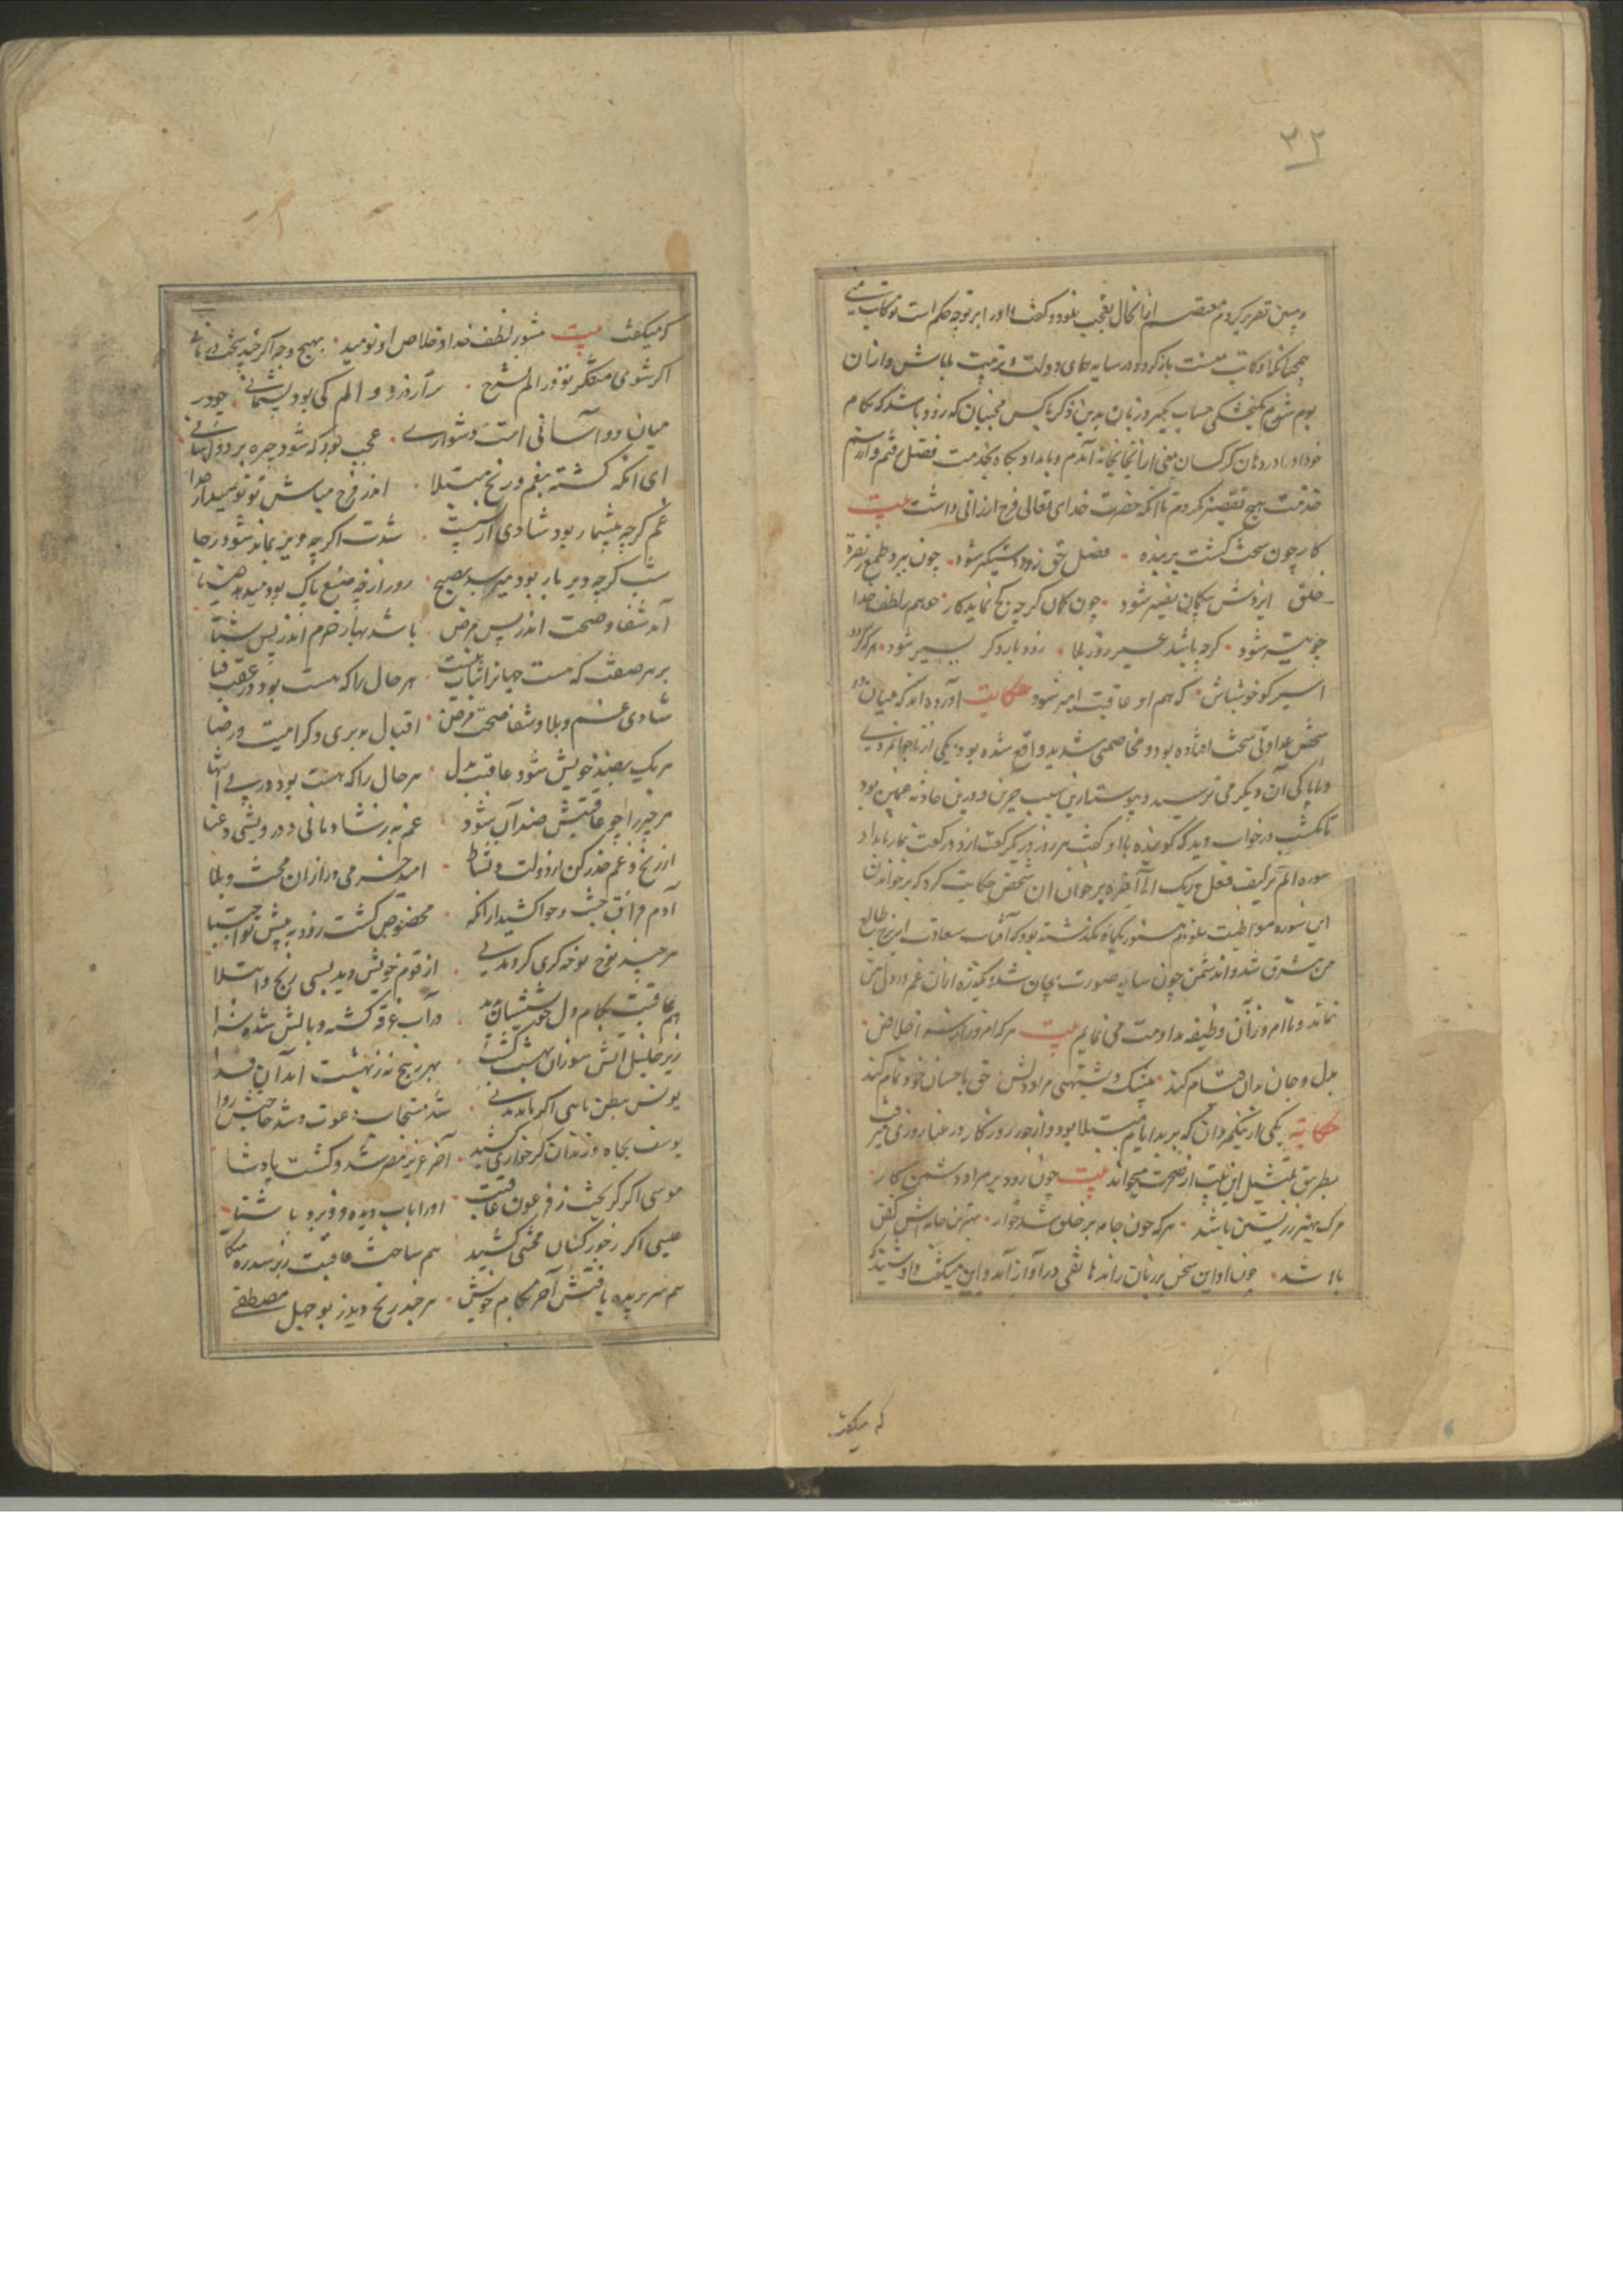 ۳۲
و پیش تقریر کردم معتصم ازان حال تعجب نمود و گفت اورا بر تو چه حکم است تو کاتب منی
همچنانکه او کاتب منست باز کرد و در سایه همای دولت و تربیت ما باش و ازان
بوم شوم گنجشکی حساب مگیر و زبان بدین ذکر باکس مجنبان که زود باشد که بکام
خود اورا در دهان کرکسان بینی از آنجا بخانه آمدم و بامداد بگاه بخدمت فضل رفتم و از رسم
خدمت هیچ تقصیر نکردم تا آنکه حضرت خدای تعالی فرج ارزانی داشت بیت
کار چون سخت گشت بر بنده فضل حق زود دستگیر شود چون ببرد طمع ز نصرت
خلق ایزدش بیگمان نصیر شود چون کمان گرچه کج نماید کار هم بلطف خدا
چو تیر شود گرچه باشد عسیر روز بلا زود بار دگر یسیر شود هر که گردد
اسیر گو خوشباش که هم او عاقبت امیر شود حکایت آورده اند که میان دو
شخص عداوتی سخت افتاده بود و مخاصمتی شدید واقع شده بود یکی از ناجوانمردی
و ناپاکی آن دیگر می ترسید و پیوسته ازین سبب حزین و درین حادثه غمین بود
تا یکشب در خواب دید که گوینده با او گفت هر روز در یک رکعت از دو رکعت نماز بامداد
سوره الم تر کیف فعل ربک الی آخره بر خوان ان شخص حکایت کرد که بر خواندن
این سوره مواظبت نمودم هنوز یکماه نگذشته بود که آفتاب سعادت از برج طالع
من مشرق شد و اندشمن چون سایه صورت بیجان شد و یکذره ازان غم در دل من
نماند و تا امروز آن وظیفه مداومت می نمایم بیت هر که امروز از سر اخلاص
بدل و جان بدان قیام کند بیشک و شبهتی مراد دلش حق باحسان خود تمام کند
حکایة یکی از نیکمردان که بر بد ایام مبتلا بود و از جور روزگار در عنا روزی میرفت
بطریق تمثیل این بیت از ضجرت میخواند بیت چون رود بر مراد دشمن کار
مرگ بهتر ز زیستن باشد هر که چون جامه بر خلق شد خوار بهترین جامه اش کفن
باشد چون او این سخن بر زبان راند هاتفی در آواز آمد و این میگفت و او میشنید
که میگفت
که میگفت بیت مشو ز لطف خدا و خلاص او نومید بهیچ وجه اگر چند سخت درمانی
اگر شوی متفکر تو در الم نشرح ترا ز درد و الم کی بود پشیمانی چو در
میان دو آسانی است دشواری عجب بود که شود چیره بر دو آسانی
ای آنکه گشته بغم و رنج مبتلا اندر فرج مباش تو نومید از خدا
غم گرچه بیشمار بود شادی از پیست شدت اگرچه دیر نماند شود رخا
شب گرچه دیر باز بود میرسد بصبح روز ارچه ضیع پاک بود میدهد ضیا
آمد شفا و صحت اندر پس مرض باشد بهار خرم اندر پس شتا
بر هر صفت که هست جهانرا ثبات نیست هر حال را که هست بود در عقب فنا
شادی غم و بلا و شفا صحت و مرض اقبال و مدبری و کرامیت و رضا
هر یک بضد خویش شود عاقبت بدل هر حال را که هست بود در پی انتها
هر چیز را چو عاقبتش ضد آن شود غم به ز شادمانی و درویشی و غنا
از رنج و غم حذر کن از دولت و نشاط امید خرمی ور از آن محنت و بلا
آدم فراق جنت و حوا کشید ازانکه مخصوص گشت زود به پیش تو اجتبا
هر چند نوح نوحه گری کرد مدتی از قوم خویش دید بسی رنج و ابتلا
هم عاقبت بکام دل خویششان بدید در آب غرقه گشته و بالش شده سزا
زیر خلیل آتش سوزان بهشت گشت بهر ذبیح نه ز بهشت آمد آن فدا
یونس ببطن ماهی اگر ماند مدتی شد مستجاب دعوت و شد حاجتش روا
یوسف بچاه و زندان گر خواری کشید آخر عزیز مصر شد و گشت پادشا
موسی اگر گریخت ز فرعون عاقبت اورا باب دیده فرو برد باشتا
عیسی اگر ز جور کسان محنتی کشید هم ساخت عاقبت ز بر سدره متکا
هم سر بریده یافتش آخر بکام خویش هر چند رنج دید ز بوجهل مصطفی